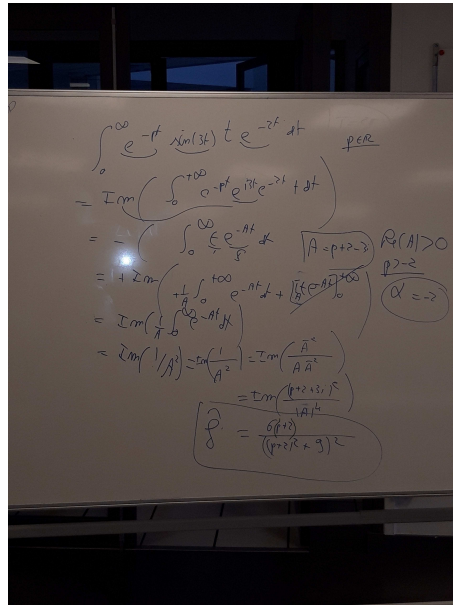 ∫₀^∞ e^{-pt} sin(3t) t e^{-2t} dt   p∈ℝ
= Im( ∫₀^{+∞} e^{-pt} e^{i3t} e^{-2t} t dt )
= - ( ∫₀^∞ t e^{-At} dt   A = p+2-3i   Re(A)>0
p>-2
= + Im( +1/A ∫₀^{+∞} e^{-At} dt + [t/A e^{-At}]₀^{+∞} )   α = -2
= Im( 1/A ∫₀^∞ e^{-At} dt )
= Im(1/A²) = Im(1/A²) = Im( Ā² / A Ā² )
= Im( (p+2+3i)² / |A|⁴ )
f̂ = 6(p+2) / ((p+2)² + 9)²